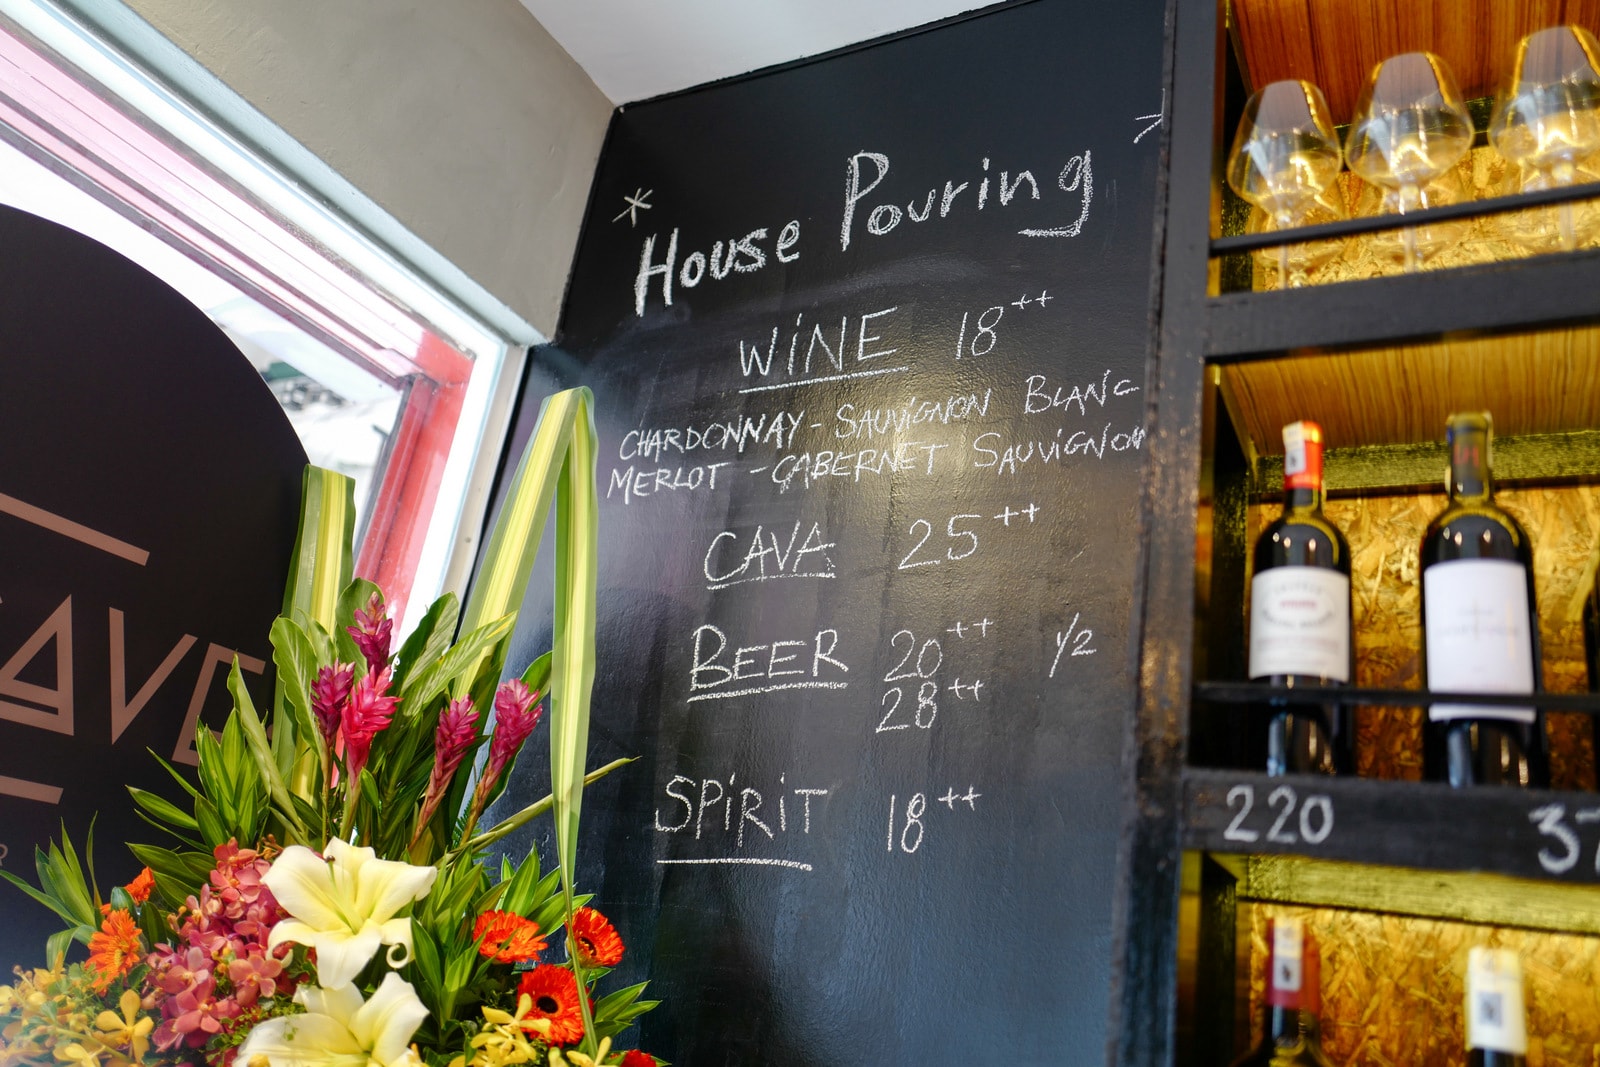 * House Pouring *
WINE 18++
CHARDONNAY - SAUViGNON BLANC
MERLOT - CABERNET SAUViGNON
CAVA 25++
BEER 20++ 1/2
28++
SPiRiT 18++
220